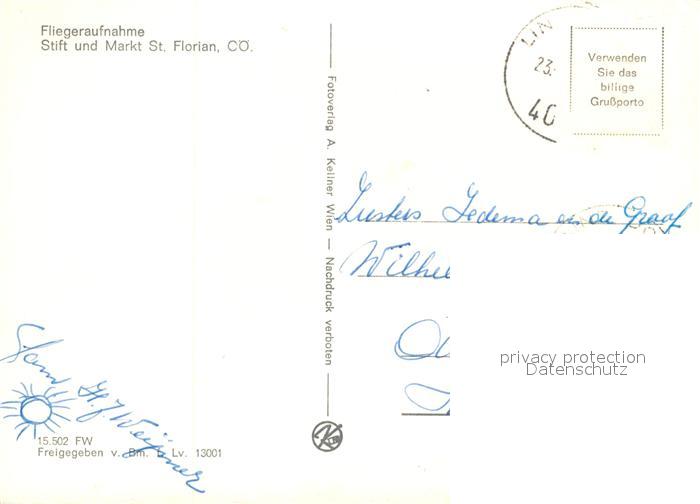 Fliegeraufnahme
Stift und Markt St. Florian, CÖ.
LIN
23.
40
Verwenden
Sie das
billige
Grußporto
Fotoverlag A. Kellner Wien — Nachdruck verboten
Zusters Jedema en de Graaf
Wilhe
privacy protection
Datenschutz
Fam
15.502 FW
Freigegeben v. Bm. f. Lv. 13001